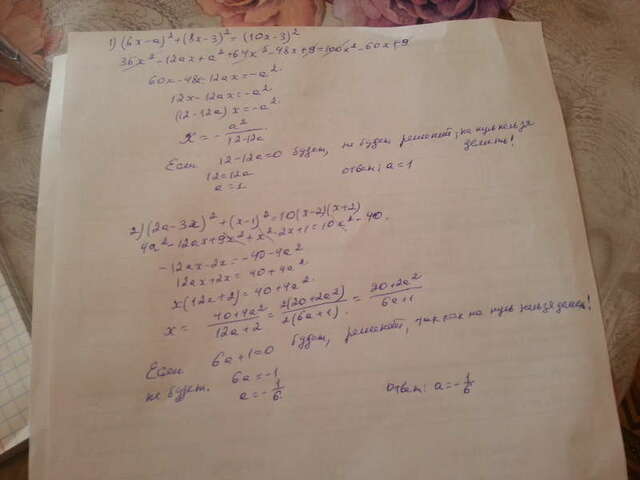 1) (6x-a)²+(8x-3)²=(10x-3)²
36x²-12ax+a²+64x²-48x+9=100x²-60x+9
60x-48x-12ax=-a²
12x-12ax=-a²
(12-12a)x=-a²
x=-a²/12-12a
Если 12-12a=0 будет, не будет решений, на нуль нельзя
12=12a делить!
a=1 ответ: a=1
2) (2a-3x)²+(x-1)²=10(x-2)(x+2)
4a²-12ax+9x²+x²-2x+1=10x²-40
-12ax-2x=-40-4a²
12ax+2x=40+4a²
x(12a+2)=40+4a²
x=40+4a²/12a+2=2(20+2a²)/2(6a+1)=20+2a²/6a+1
Если 6a+1=0 будет, решений, на нуль нельзя делить!
6a=-1
не будет. a=-1/6 ответ: a=-1/6